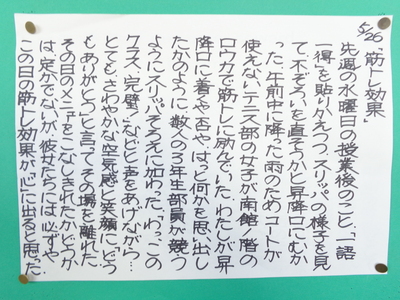 5/26「筋トレ効果」
先週の水曜日の授業後のこと、「一語
一得」を貼りかえつつ、スリッパの様子を見
て、不ぞろいを直そうかと昇降口にむか
った。午前中に降った雨のためコートが
使えないテニス部の女子が南館1階の
ロウカで筋トレに励んでいた。わたしが昇
降口に着くや否や、はっと何かを思い出し
たかのように、数人の3年生部員が競う
ようにスリッパそろえに加わった。「わっ、この
クラス、完璧!」などと声をあげながら…
とても、さわやかな空気感と笑顔に「どう
もありがとう」と言って、その場を離れた。
その日のメニューをこなしきれたかどうか
は、定かでないが、彼女たちには、必ずや、
この日の筋トレ効果が「心」に出ると思った。